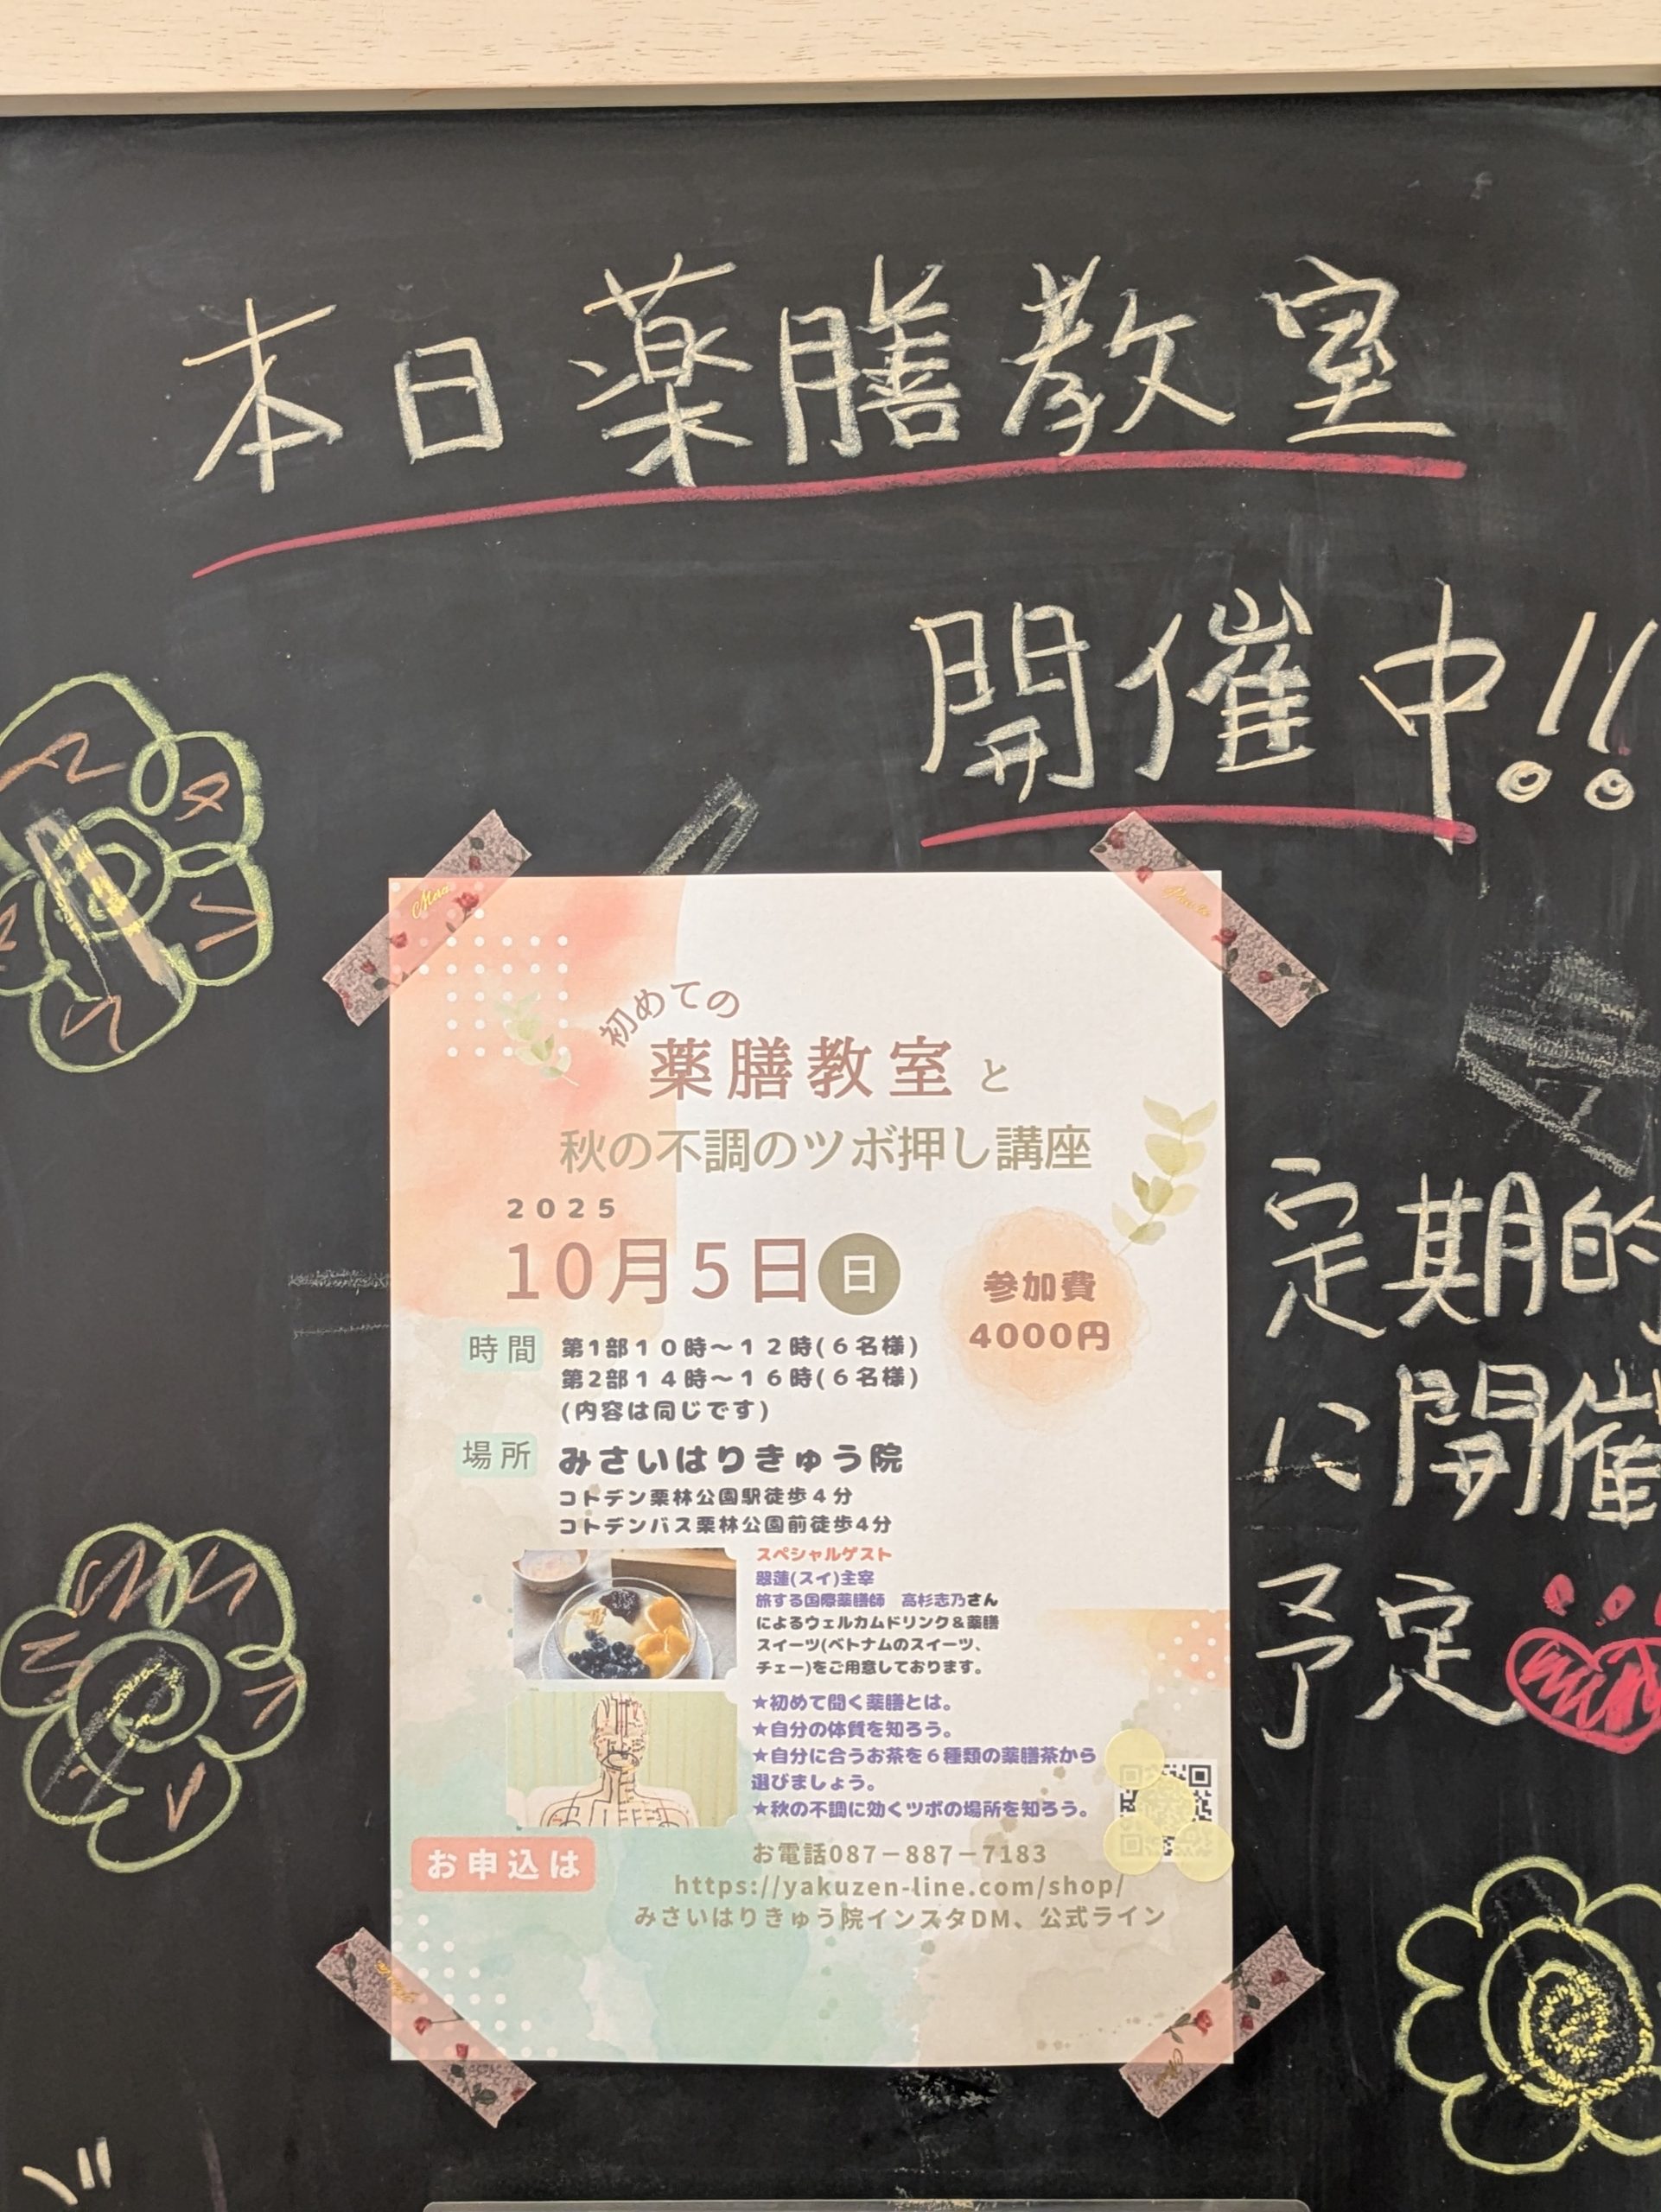 本日薬膳教室
開催中!!
初めての
薬膳教室と
秋の不調のツボ押し講座
2025
10月5日日
参加費
4000円
時間
第1部10時～12時(6名様)
第2部14時～16時(6名様)
(内容は同じです)
場所
みさいはりきゅう院
コトデン栗林公園駅徒歩4分
コトデンバス栗林公園前徒歩4分
スペシャルゲスト
翠蓮(スイ)主宰
旅する国際薬膳師 高杉志乃さん
によるウェルカムドリンク&薬膳
スイーツ(ベトナムのスイーツ、
チェー)をご用意しております。
★初めて聞く薬膳とは。
★自分の体質を知ろう。
★自分に合うお茶を6種類の薬膳茶から
選びましょう。
★秋の不調に効くツボの場所を知ろう。
お申込は
お電話087－887－7183
https://yakuzen-line.com/shop/
みさいはりきゅう院インスタDM、公式ライン
定期的
に開催
予定